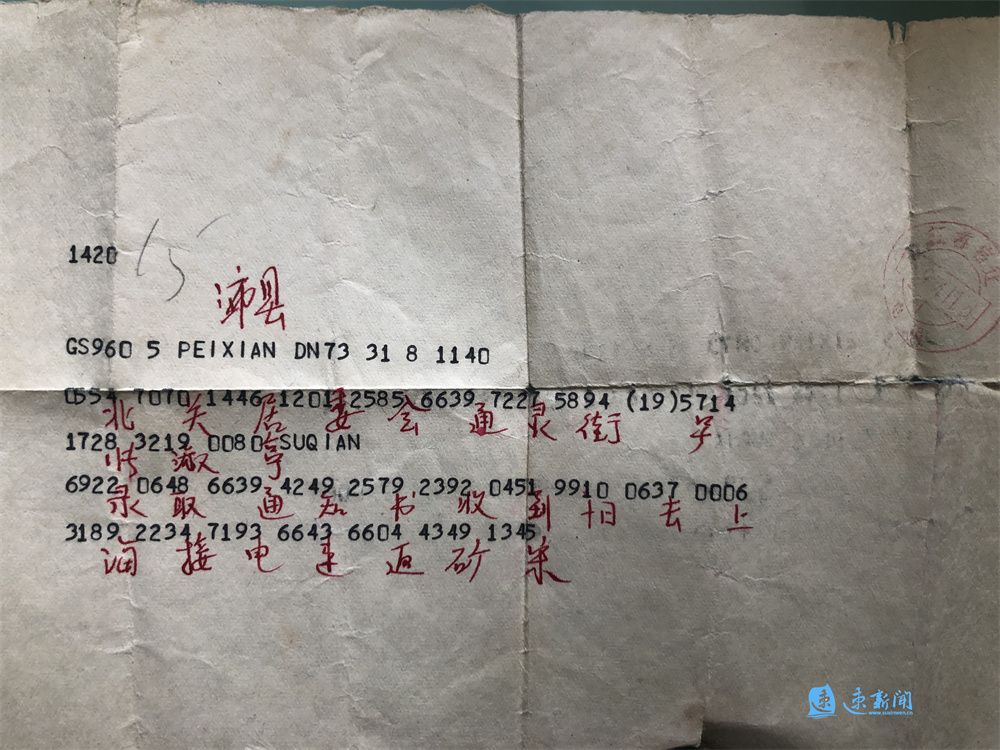 1420
15
沛县
GS960 5 PEIXIAN DN73 31 8 1140
0554 7070 1446 1201 2585 6639 7227 5894 (19)5714
北关居委会通灵街 号
1728 3219 0080 SUQIAN
张淑亭
6922 0648 6639 4249 2579 2392 0451 9910 0637 0006
录取通知书收到十日去上
3189 2234 7193 6643 6604 4349 1345
海接电速返砂宋
江苏宿迁
速新闻
www.suxinwen.cn